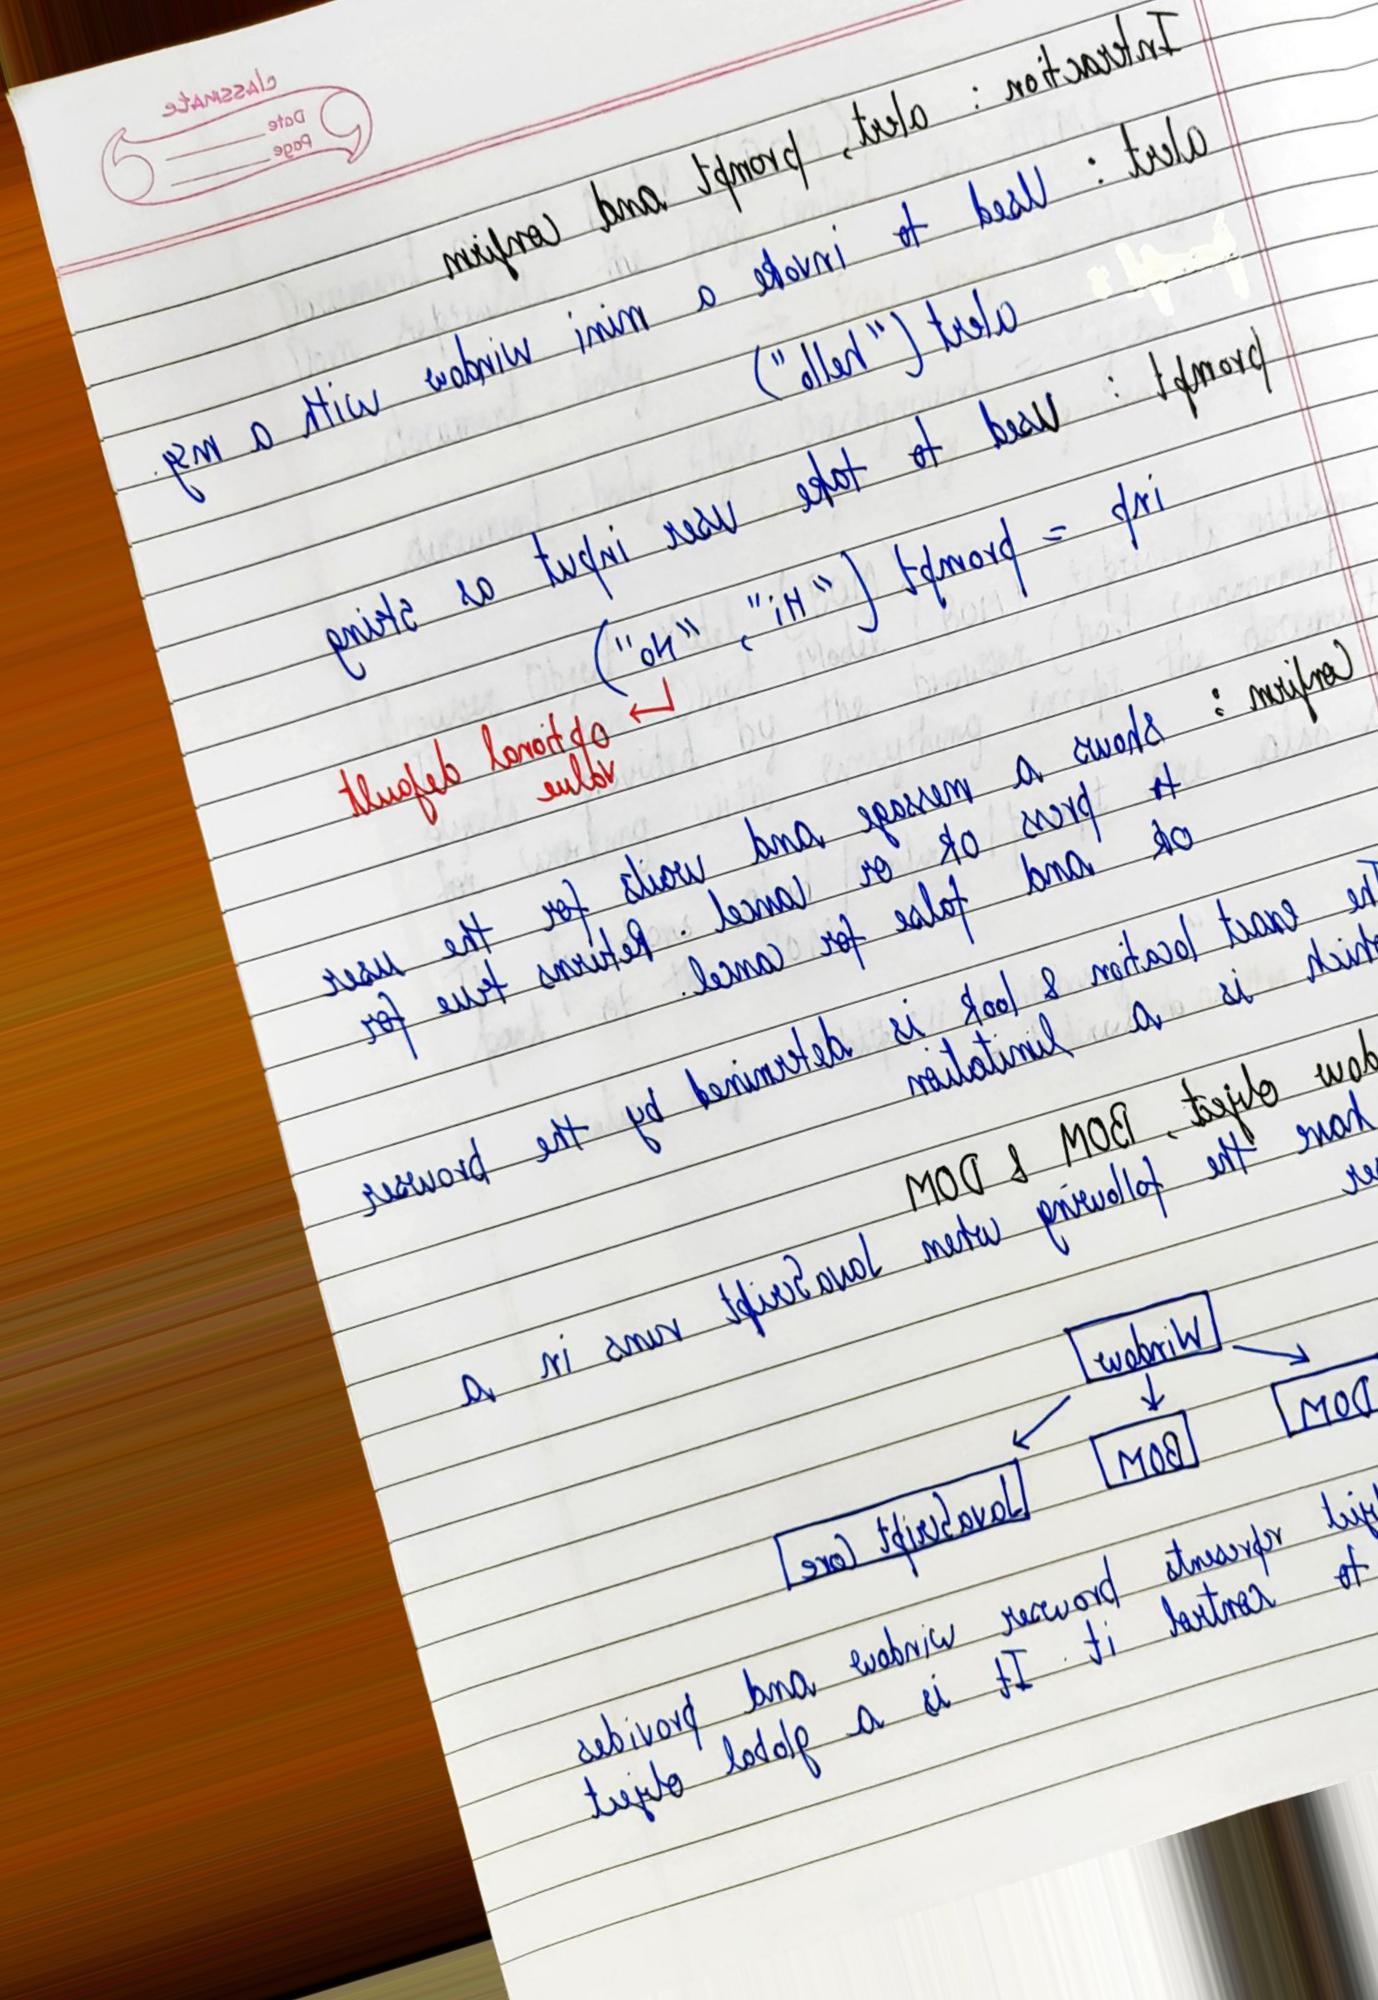 classmate
Date
Page
Interaction : alert, prompt and confirm
alert : Used to invoke a mini window with a msg.
alert ("hello")
prompt : Used to take user input as string
inp = prompt ("Hi", "No")
optional default
value
Confirm : shows a message and waits for the user
to press ok or cancel. Returns true for
ok and false for cancel.
The exact location & look is determined by the browser
which is a limitation
dow object, BOM & DOM
have the following when JavaScript runs in a
ser
Window
DOM
BOM
JavaScript Core
ject represents browser window and provides
to control it. It is a global object